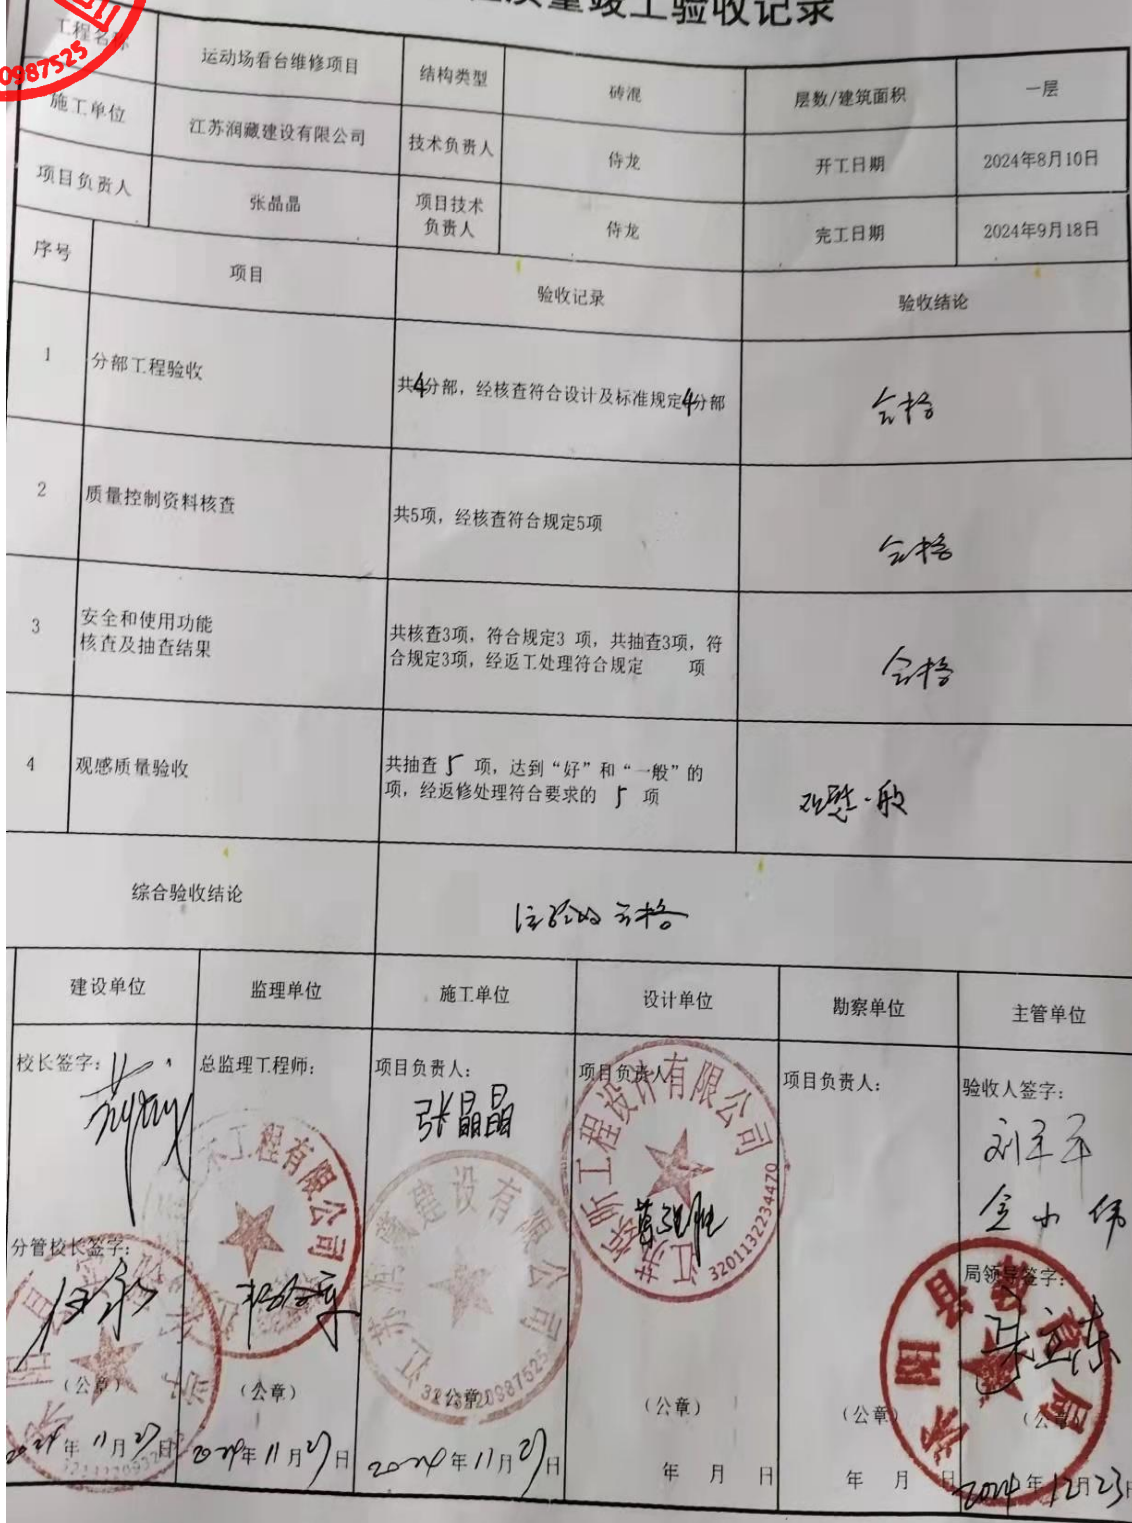 质量竣工验收记录
工程名称 运动场看台维修项目 结构类型 砖混 层数/建筑面积 一层
施工单位 江苏润藏建设有限公司 技术负责人 侍龙 开工日期 2024年8月10日
项目负责人 张晶晶 项目技术负责人 侍龙 完工日期 2024年9月18日
序号 项目 验收记录 验收结论
1 分部工程验收 共4分部，经核查符合设计及标准规定4分部 合格
2 质量控制资料核查 共5项，经核查符合规定5项 合格
3 安全和使用功能
核查及抽查结果
共核查3项，符合规定3 项，共抽查3项，符
合规定3项，经返工处理符合规定 项
合格
4 观感质量验收
共抽查 5 项，达到“好”和“一般”的
项，经返修处理符合要求的 5 项
一般
综合验收结论 验收合格
建设单位 监理单位 施工单位 设计单位 勘察单位 主管单位
校长签字：
分管校长签字：
（公章）
2024年11月27日
总监理工程师：
工程有限公司
（公章）
2024年11月27日
项目负责人：
张晶晶
建设有限公司
（公章）
2024年11月27日
项目负责人
工程设计有限公司
3201132234470
（公章）
年 月 日
项目负责人：
（公章）
年 月 日
验收人签字：
局领导签字：
（公章）
2024年12月23日